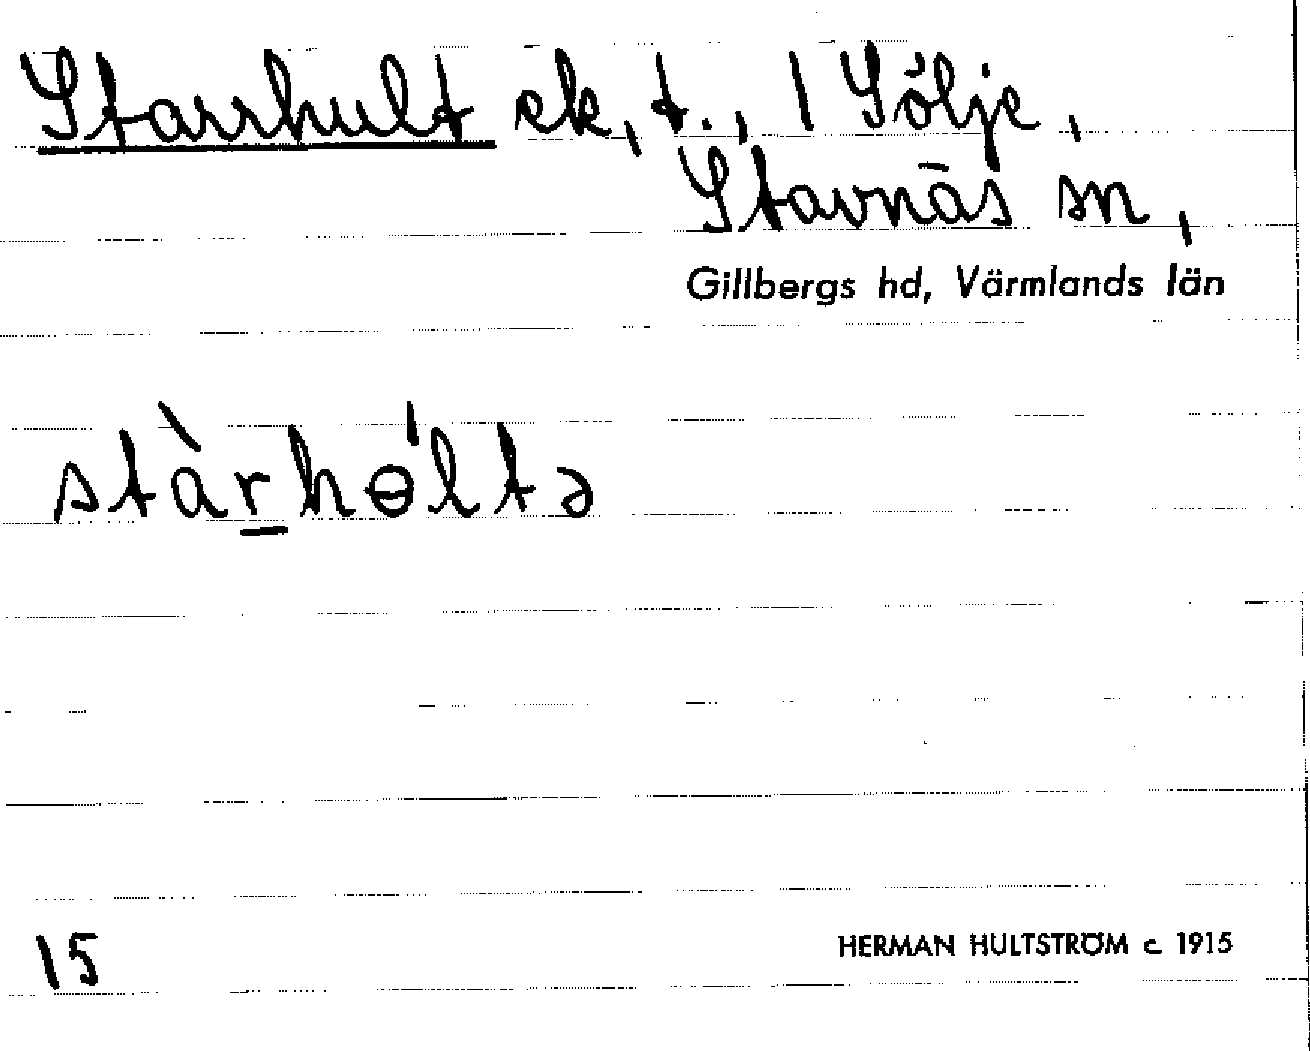 Starrhult ek, t., 1 Sölje,
Stavnäs sn,
Gillbergs hd, Värmlands län
stàrhɵ́ltə
15
HERMAN HULTSTRÖM c. 1915